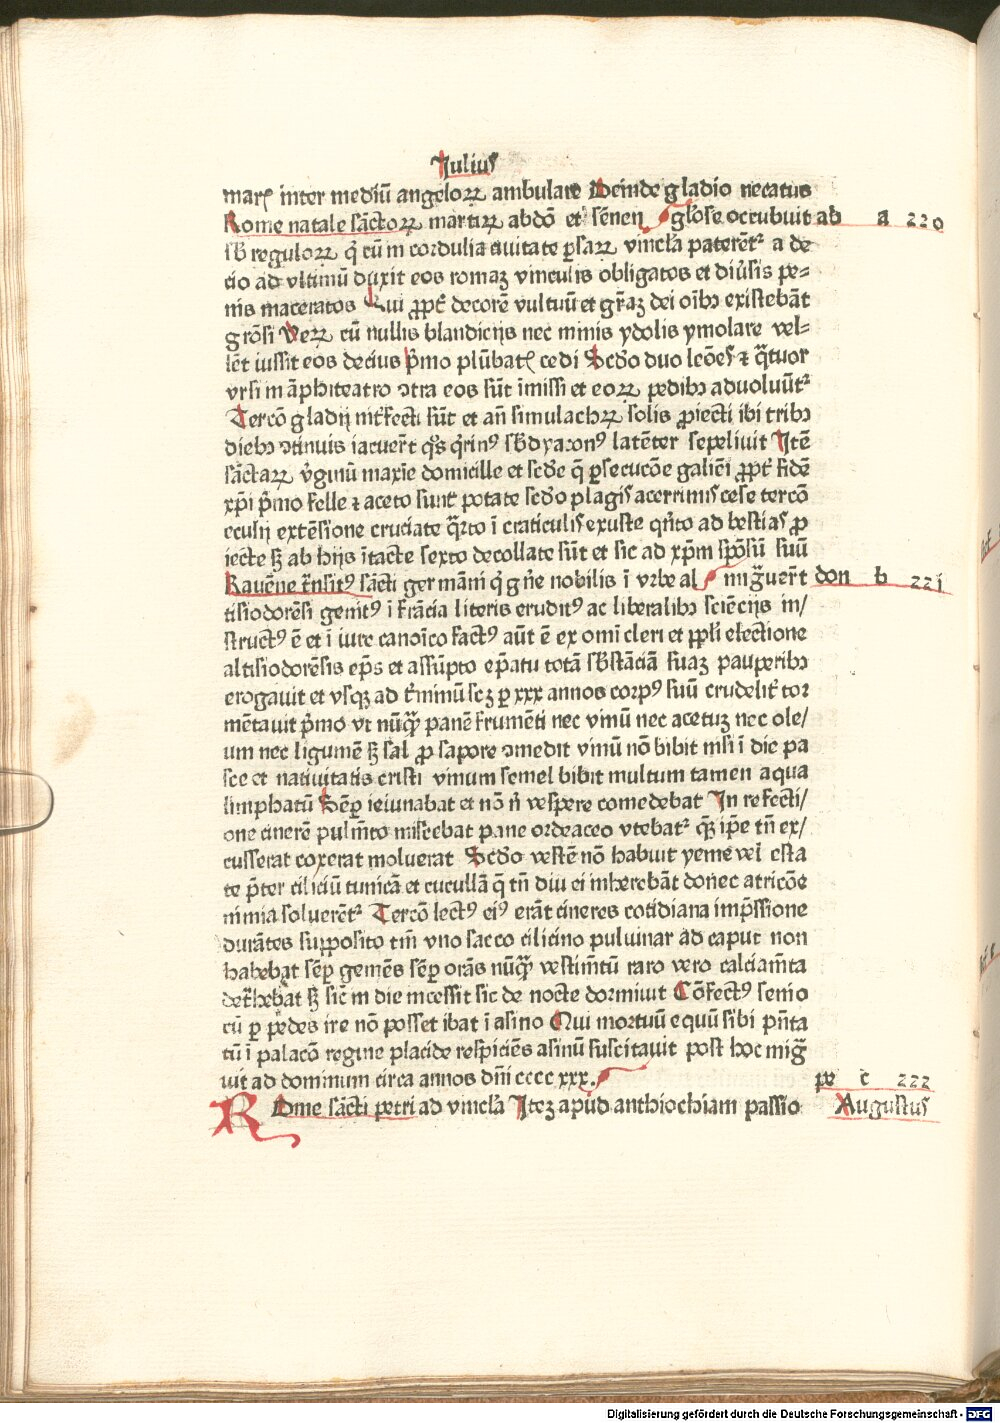 Julius
marꝭ inter mediū angeloꝝ ambulare Deinde gladio necatus
Rome natale sāctoꝝ martiꝝ abdō et sēnen gl'ose occubuit ad a 220
sb reguloꝝ q̇ cū in cordulia ciuitate ꝑsaꝝ vincl'a paterēt᷑ a de
cio ad vltimū duxit eos romaꝫ vinculis obligatos et diu'sis pe=
nis maceratos Qui ꝓpt' decorē vultuū et gr̄aꝫ dei oīb⁹ existebāt
grōsi Veꝝ cū nullis blandicijs nec minis ydolis ymolare vel=
lēt iussit eos decius p̄mo plūbatꝭ cedi Scd̄o duo leōes ⁊ q̄tuor
vrsi in āphiteatro ↄtra eos sūt īmissi et eoꝝ pedib⁹ aduoluūt᷑
Tercō gladij int'fecti sūt et an̄ simulachꝝ solis ꝓiecti ibi trib⁹
dieb⁹ ↄtinuis iacuer̄t q̄s q̇rin⁹ sb̄dyacon⁹ latēter sepeliuit Itē
sāctaꝝ v̇ginū maxīe domicille et scd̄e q̄ ꝑsecucōe galiēi ꝓpt' fidē
xp̄i p̄mo felle ⁊ aceto sunt potate scd̄o plagis acerrimis cese tercō
eculij extēsione cruciate q̄rto ī craticulis exuste qn̄to ad bestias ꝓ
iecte sꝫ ab hijs ītacte sexto decollate sūt et sic ad xp̄m spōsū suū
Rauēne tn̄sit⁹ sācti germāni q̇ gn̄e nobilis ī vrbe al migr̄auer̄t don b 221
tisiodorēsi genit⁹ ī frācia literis erudit⁹ ac liberalib⁹ sciēcijs in/
struct⁹ ē et ī iure canoīco fact⁹ aūt ē ex omī cleri et ppl'i electione
altisiodorēsis ep̄s et assūpto ep̄atu totā sb̄stāciā suaꝫ pauperib⁹
erogauit et vsqꝫ ad t'minū scꝫ ꝑ xxx annos corp⁹ suū crudelit' tor
mētauit p̄mo vt nūq̄ panē frumēti nec vinū nec acetuꝫ nec ole/
um nec ligumē sꝫ sal ꝓ sapore ↄmedit vinū nō bibit nisi ī die pa
sce et natiuitatis cristi vinum semel bibit multum tamen aqua
limphatū Sēꝑ ieiunabat et nō n̄ vespere comedebat In refecti/
one cinerē pulm̄to miscebat pane ordeaceo vtebat᷑ qꝫ ip̄e tn̄ ex/
cusserat coxerat moluerat Scd̄o vestē nō habuit yeme vel esta
te p̄ter ciliciū tunicā et cucullā q̄ tn̄ diu ei inherebāt donec atricōe
nimia soluerēt᷑ Tercō lect⁹ ei⁹ erāt cineres cotidiana imp̄ssione
durātes supposito tm̄ vno sacco cilicino puluinar ad caput non
habebat sēꝑ gemēs sēꝑ orās nūq̄ vestim̄tū raro vero calciam̄ta
det'hebat sꝫ sic̄ in die incessit sic de nocte dormiuit Cōfect⁹ senio
cū ꝑ pedes ire nō posset ibat ī asino Qui mortuū equū sibi pn̄ta
tū ī palacō regine placide respiciēs asinū suscitauit post hoc migr̄
uit ad dominum circa annos dn̄i cccc xxx. pe c 222
Rome sācti petri ad vincl'a Iteꝫ apud anthiochiam passio Augustus
Digitalisierung gefördert durch die Deutsche Forschungsgemeinschaft - DFG